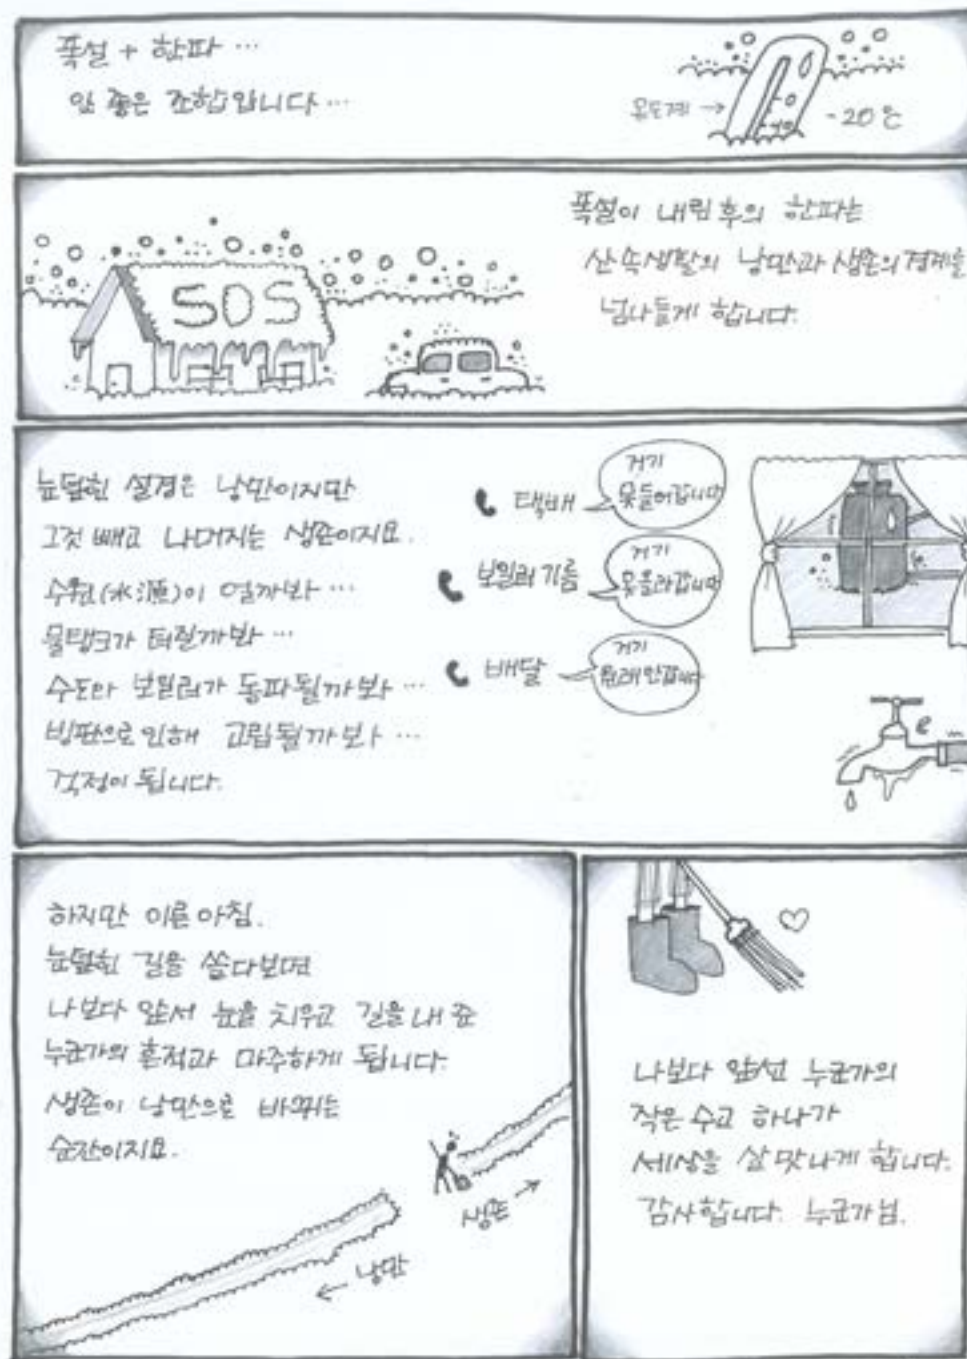 폭설 + 한파 …
안 좋은 조합입니다 …
온도계 →
-20℃
폭설이 내린 후의 한파는
산속생활의 낭만과 생존의 경계를
넘나들게 합니다.
SOS
눈덮힌 설경은 낭만이지만
그것 빼고 나머지는 생존이지요.
수원(水源)이 얼까봐 …
물탱크가 터질까봐 …
수도와 보일러가 동파될까봐 …
빙판으로 인해 고립될까봐 …
걱정이 됩니다.
택배
거기
못들어갑니다
보일러 기름
거기
못올라갑니다
배달
거기
원래 안갑니다
하지만 이른 아침.
눈덮힌 길을 쓸다보면
나보다 앞서 눈을 치우고 길을 내 준
누군가의 흔적과 마주하게 됩니다.
생존이 낭만으로 바뀌는
순간이지요.
생존 →
← 낭만
나보다 앞선 누군가의
작은 수고 하나가
세상을 살맛나게 합니다.
감사합니다. 누군가님.